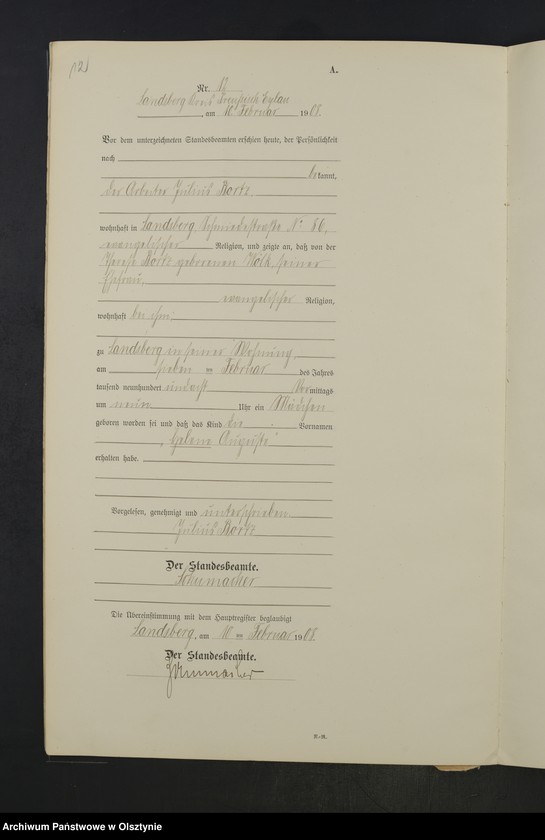 12
A.
Nr. 12
Landsberg Kreis Preußisch Eylau
, am 10. Februar 1908.
Vor dem unterzeichneten Standesbeamten erschien heute, der Persönlichkeit
nach
be kannt,
der Arbeiter Julius
wohnhaft in Landsberg, Schmiedestraße No 86,
evangelischer Religion, und zeigte an, daß von der
Therese geborenen seiner
Ehefrau,
evangelischer Religion,
wohnhaft bei ihm
zu Landsberg in seiner Wohnung
am sieben ten Februar des Jahres
tausend neunhundert und acht Vor mittags
um neun Uhr ein Mädchen
geboren worden sei und daß das Kind die Vornamen
Helene Auguste
erhalten habe.
Vorgelesen, genehmigt und unterschrieben
Julius
Der Standesbeamte.
Schumacher
Die Übereinstimmung mit dem Hauptregister beglaubigt
Landsberg, am 10 ten Februar 1908.
Der Standesbeamte.
Schumacher
F.-R.
Archiwum Państwowe w Olsztynie